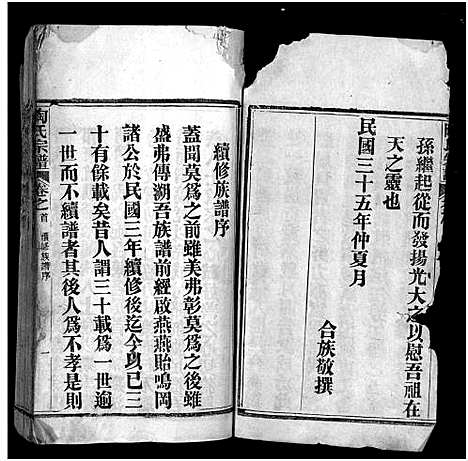 孫繼起從而發揚光大之以慰吾祖在
天之靈也
民國三十五年仲夏月
合族敬撰
續修族譜序
蓋聞莫為之前雖美弗彰莫為之後雖
盛弗傳溯吾族譜前經啟燕燕貽鳴岡
諸公於民國三年續修後迄今與已三
十有餘載矣昔人謂三十載為一世逾
一世而不續譜者其後人為不孝是則
陶氏宗譜
卷之首
續修族譜序
一